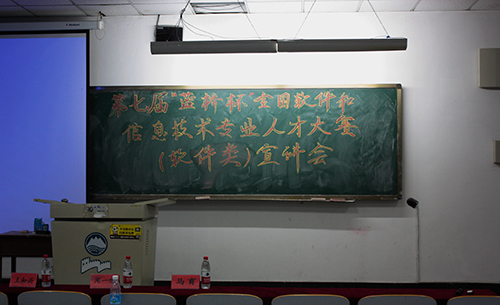 第七届"蓝桥杯"全国软件和
信息技术专业人才大赛
(软件类)宣讲会